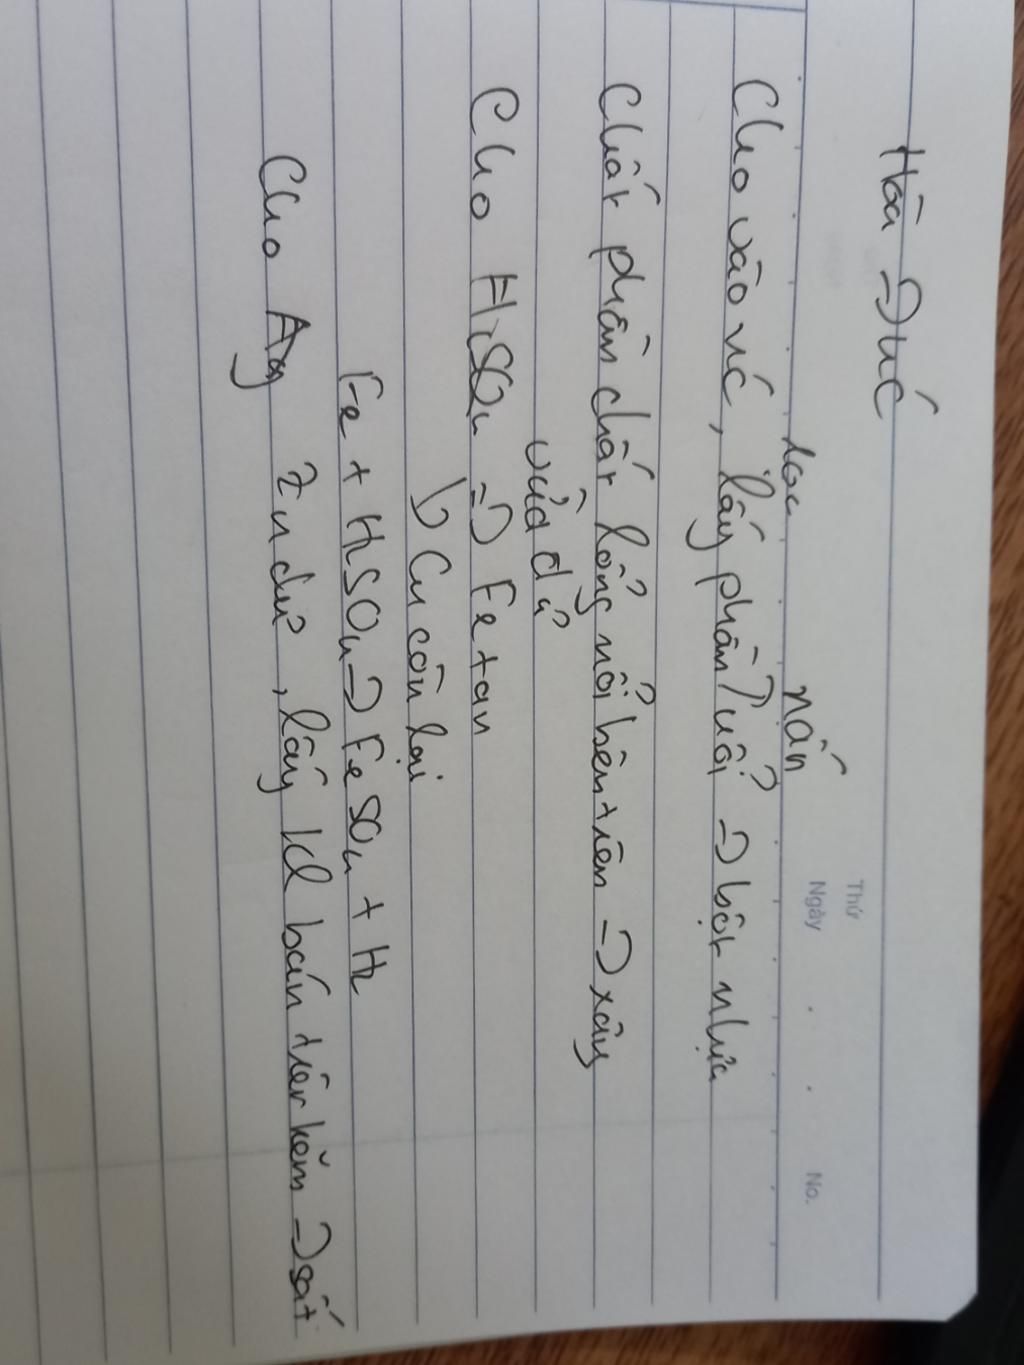 Hòa Đức
Thứ
Ngày . . No.
lọc rắn
Cho vào nc, lấy phần nổi => bột nhựa
Chất phần chất lỏng nổi bên trên => xăng
vừa đủ
Cho H2SO4 => Fe tan
↳ Cu còn lại
Fe + HSO4 => FeSO4 + H2
Cho Zn dư, lấy kl bán trên kẽm => sắt